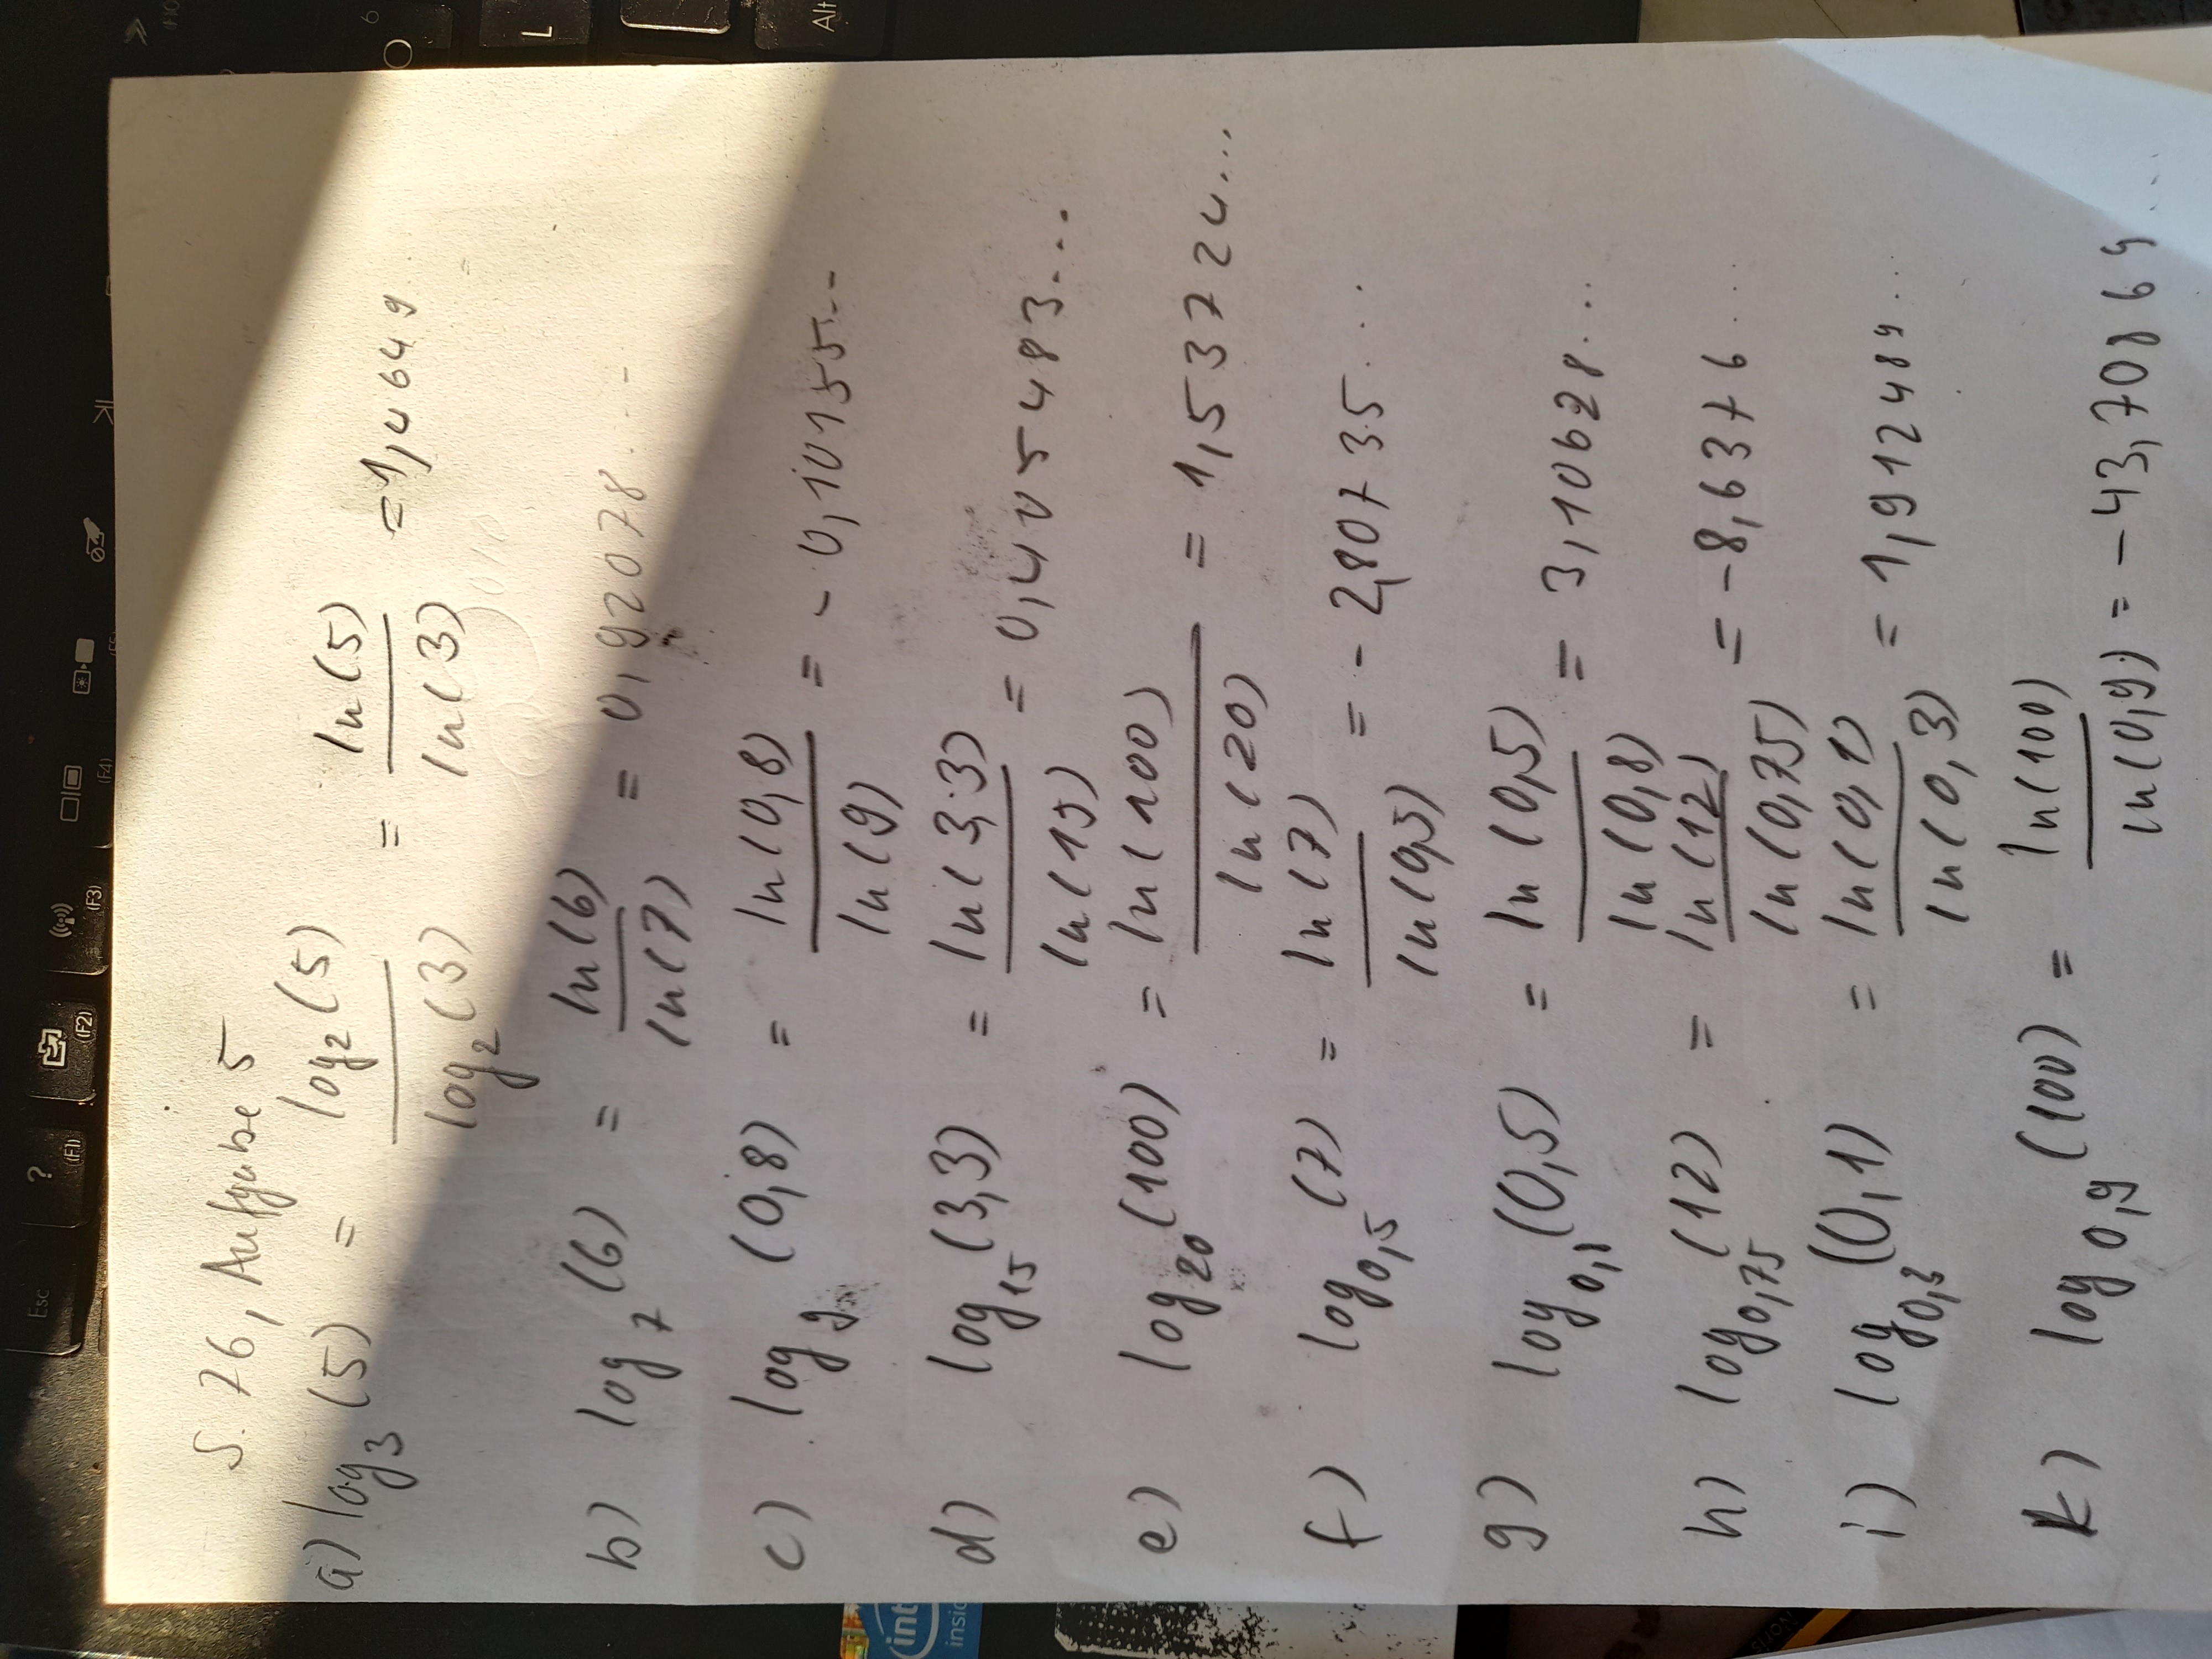 S. 76, Aufgabe 5
a) log₃ (5) = log₂(5) / log₂(3) = ln(5) / ln(3) = 1,4649
b) log₇ (6) = ln(6) / ln(7) = 0,92078...
c) log₉ (0,8) = ln(0,8) / ln(9) = -0,10155...
d) log₁₅ (3,3) = ln(3,3) / ln(15) = 0,4405483...
e) log₂₀ (100) = ln(100) / ln(20) = 1,53724...
f) log₀,₅ (7) = ln(7) / ln(0,5) = -2,80735...
g) log₀,₈ (0,5) = ln(0,5) / ln(0,8) = 3,10628...
h) log₀,₇₅ (12) = ln(12) / ln(0,75) = -8,6376...
i) log₀,₃ (0,1) = ln(0,1) / ln(0,3) = 1,912489...
k) log₀,₉ (100) = ln(100) / ln(0,9) = -43,70869
Esc
?
(F1)
(F2)
(F3)
(F4)
O
6
L
Alt
int
insid